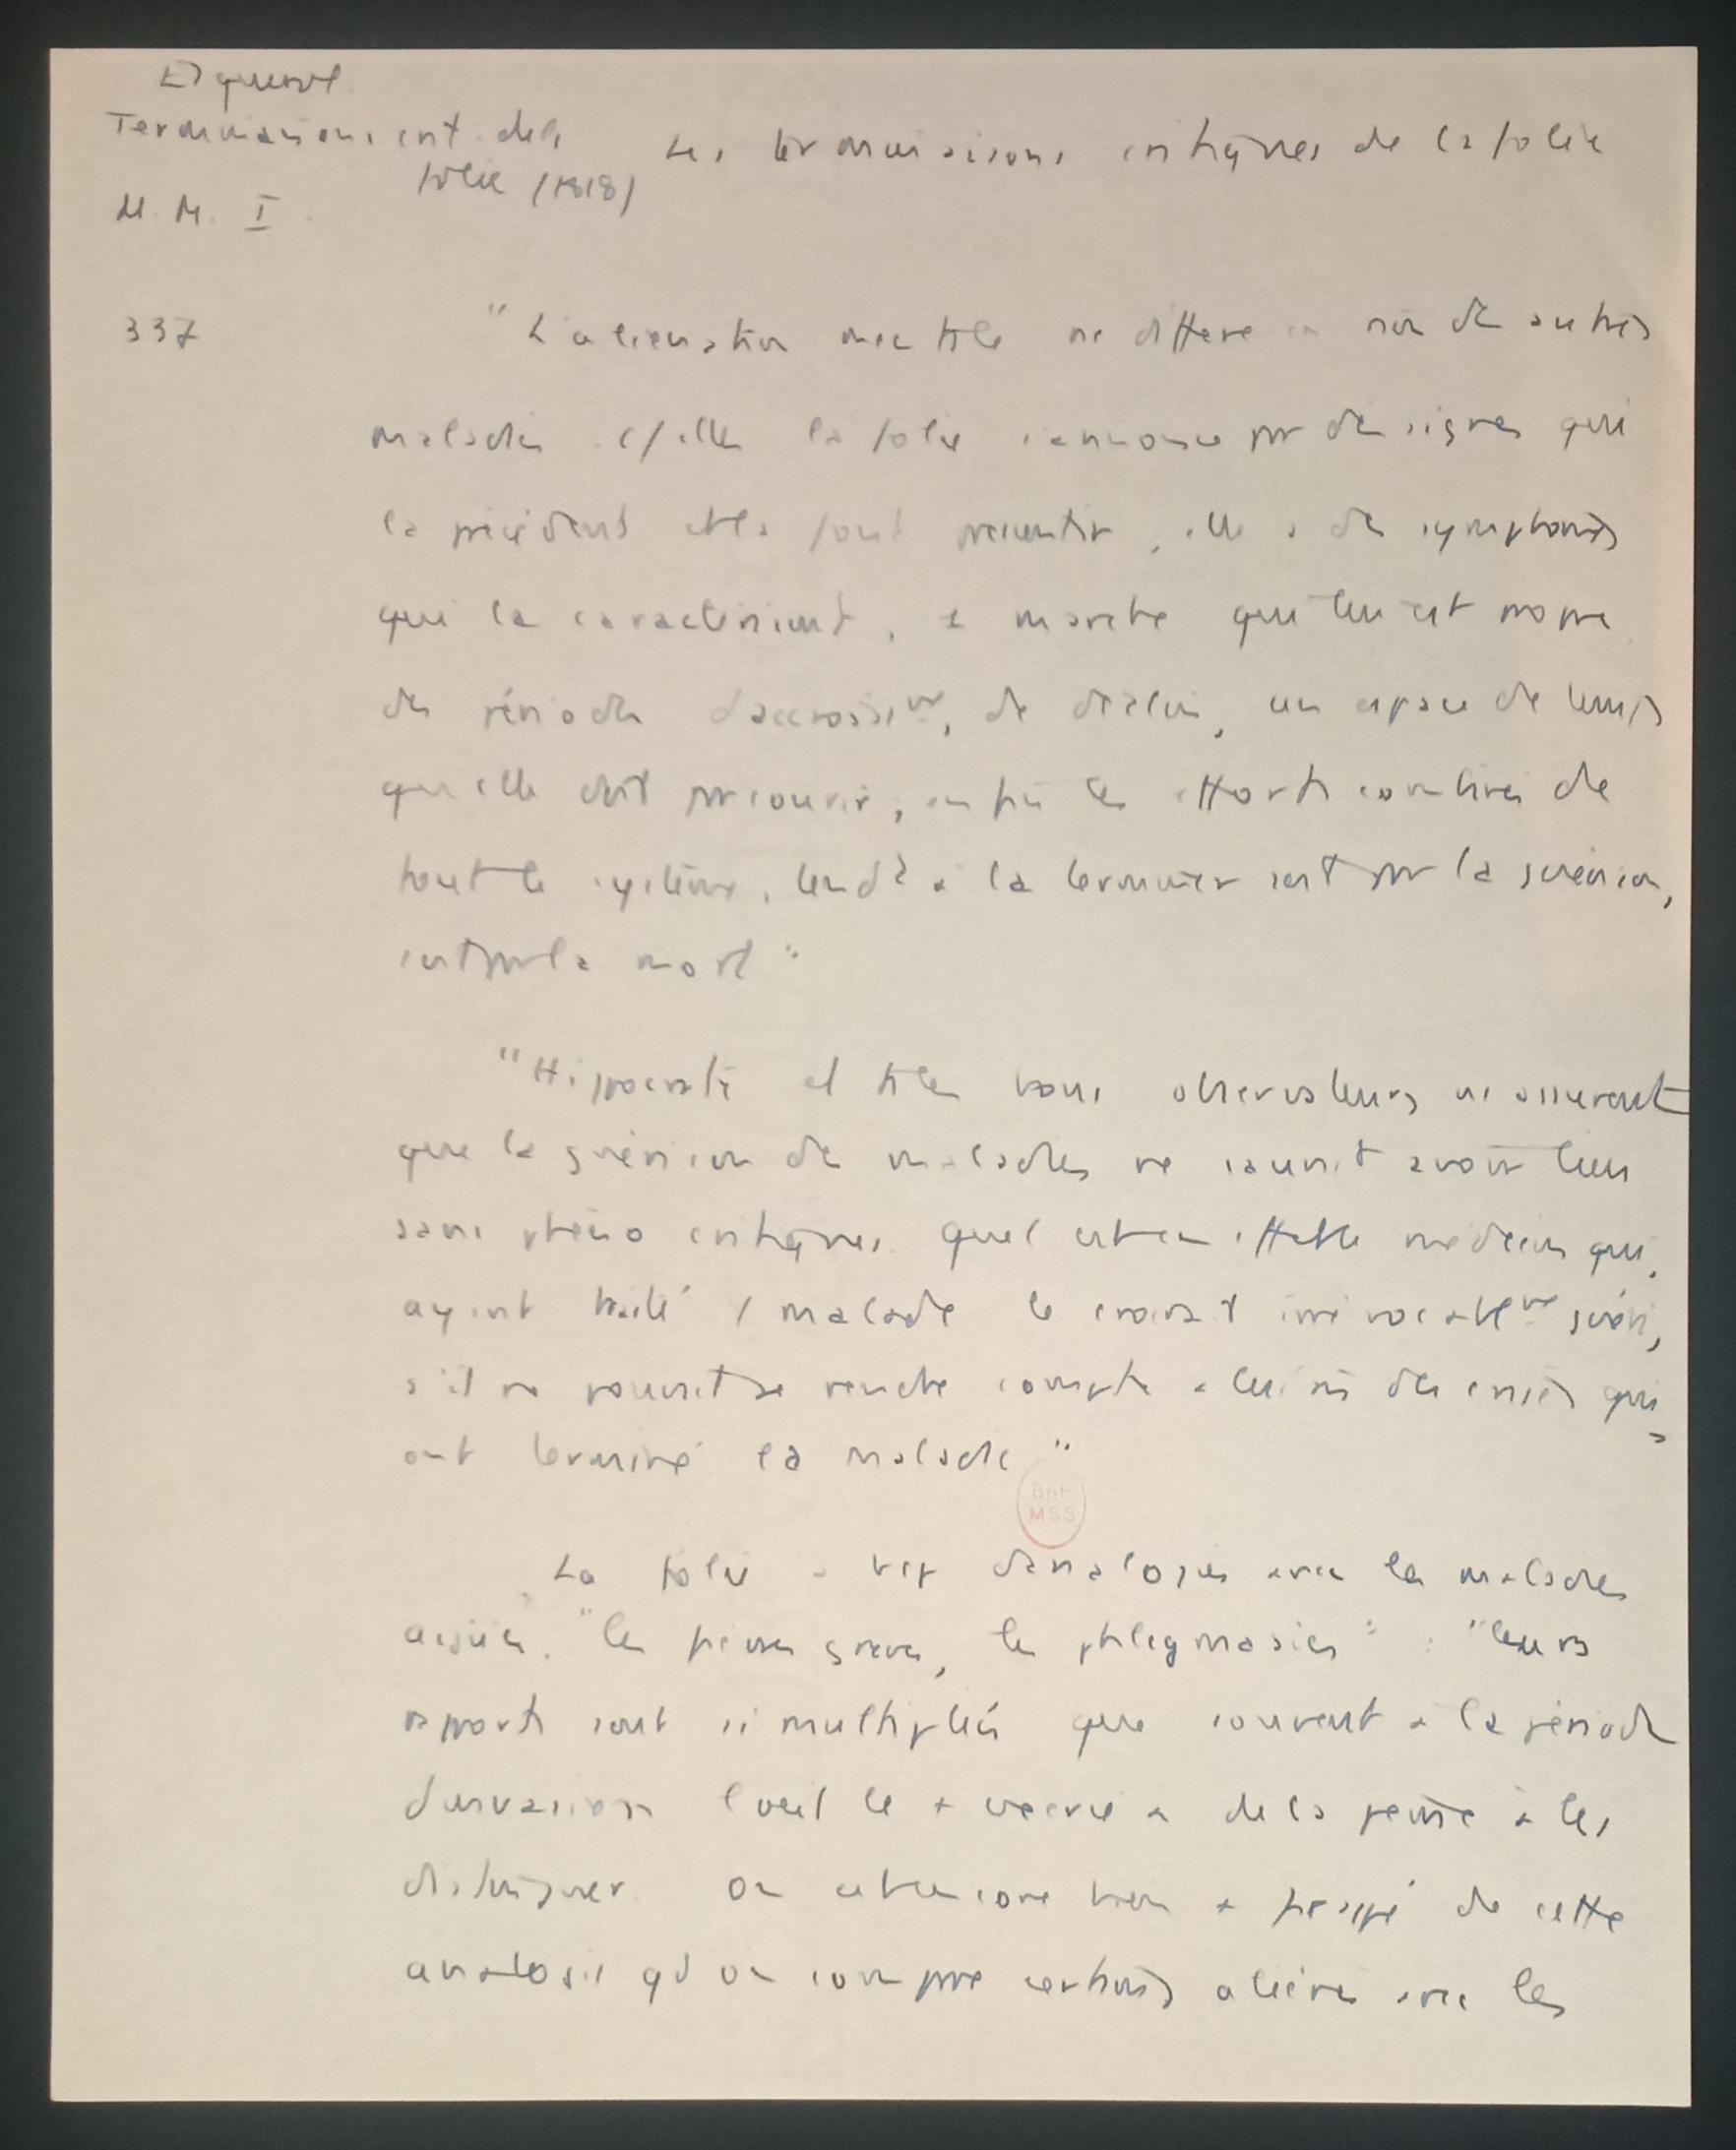 Esquirol
Terminaisons crit. de la
folie (1818)
M. M. I
Les terminaisons critiques de la folie
337
"L'aliénation mentale ne diffère en rien des autres
maladies elles la folie s'annonce par des signes qui
la précèdent et la font pressentir ; elle a des symptômes
qui la caractérisent, 1 marche qui lui est propre
des périodes d'accroissimt, de déclin, un espace de temps
qu'elle doit parcourir ; enfin les efforts combinés de
tout le système, tendt à la terminer soit par la guérison,
soit par la mort"
"Hippocrate et ts les bons observateurs ns assurent
que la guérison des maladies ne saurait avoir lieu
sans phéno critiques. Quel est en effet le médecin qui,
ayant traité 1 malade le croirait irrévocablemt guéri,
s'il ne pouvait se rendre compte à lui-m des crises qui
ont terminé la maladie"
La folie a bcp d'analogies avec les maladies
aiguës. "les fièvres graves, les phlegmasies" : "leurs
rapports sont si multipliés que souvent à la période
d'invasion l'oeil le + exercé a de la peine à les
distinguer. On est encore bien + frappé de cette
analogie qd on compare certains aliénés avec les
BnF
MSS